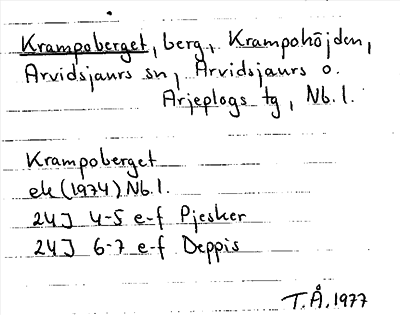 Krampoberget, berg, Krampohöjden,
Arvidsjaurs sn, Arvidsjaurs o.
Arjeplogs tg, Nb.l.
Krampoberget
ek (1974) Nb.l.
24J 4-5 e-f Pjesker
24J 6-7 e-f Deppis
T.Å. 1977